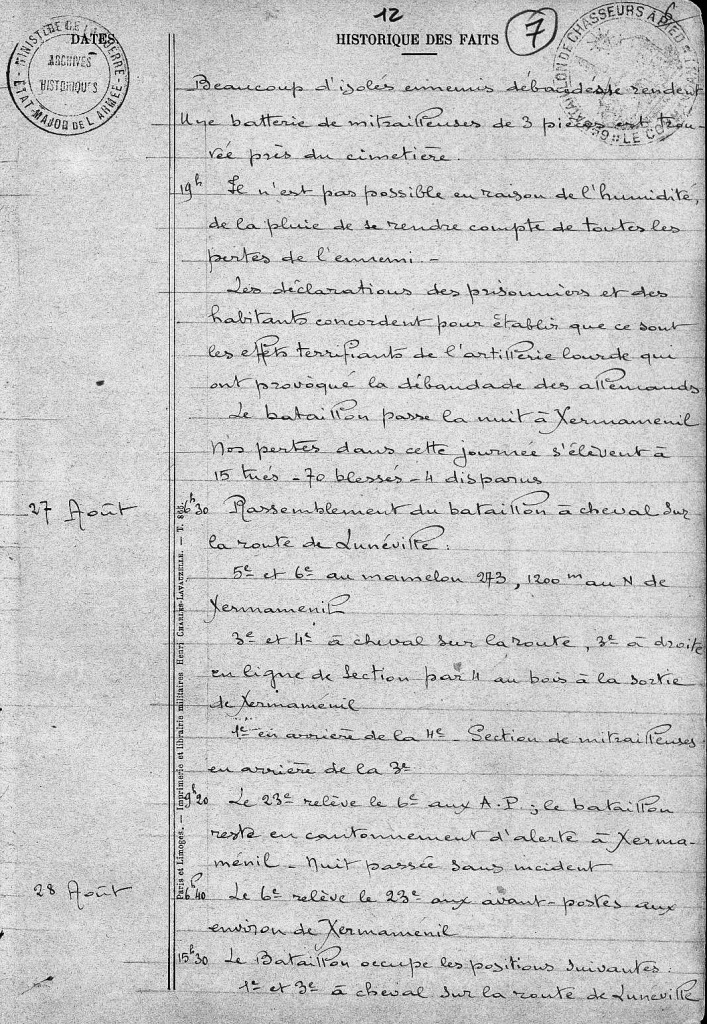 12
7
6
DATES
HISTORIQUE DES FAITS
MINISTÈRE DE LA GUERRE
ARCHIVES
HISTORIQUES
ÉTAT MAJOR DE L'ARMÉE
BATAILLON DE CHASSEURS A PIED
LE
Beaucoup d'isolés ennemis débandés se rendent
Une batterie de mitrailleuses de 3 pièces est trou-
vée près du cimetière.
19h Il n'est pas possible en raison de l'humidité,
de la pluie de se rendre compte de toutes les
pertes de l'ennemi. -
Les déclarations des prisonniers et des
habitants concordent pour établir que ce sont
les effets terrifiants de l'artillerie lourde qui
ont provoqué la débandade des allemands
Le bataillon passe la nuit à Xermamenil
Nos pertes dans cette journée s'élèvent à
15 tués - 70 blessés - 4 disparus
27 Août 6h30 Rassemblement du bataillon à cheval sur
la route de Lunéville :
5e et 6e au mamelon 273, 1200m au N de
Xermamenil
3e et 4e à cheval sur la route, 3e à droite
en ligne de section par 4 au bois à la sortie
de Xermaménil
1e en arrière de la 4e - Section de mitrailleuses
en arrière de la 3e
9h20 Le 23e relève le 6e aux A.P.; le bataillon
reste en cantonnement d'alerte à Xerma-
ménil - Nuit passée sans incident
28 Août 6h40 Le 6e relève le 23e aux avant-postes aux
environ de Xermaménil
15h30 Le Bataillon occupe les positions suivantes :
1e et 3e à cheval sur la route de Luneville
Paris et Limoges. — Imprimerie et librairie militaires Henri CHARLES-LAVAUZELLE. — T. 865